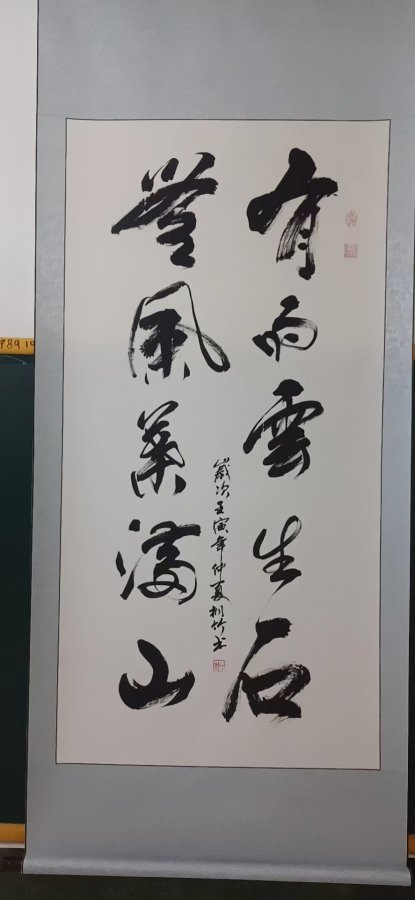 有雨雲生石
無風葉滿山
歲次壬寅年仲夏竹书